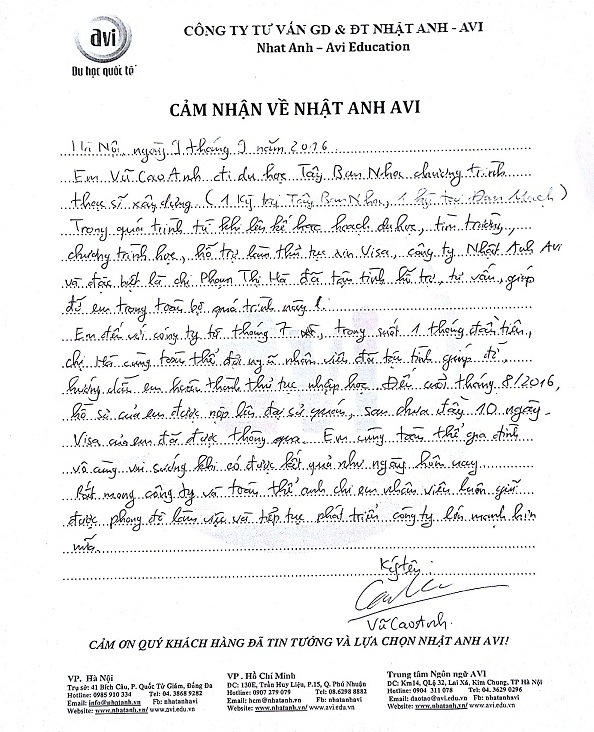 avi
Du học quốc tế
CÔNG TY TƯ VẤN GD & ĐT NHẬT ANH - AVI
Nhat Anh – Avi Education
CẢM NHẬN VỀ NHẬT ANH AVI
Hà Nội, ngày 9 tháng 9 năm 2016
Em Vũ Cao Anh đi du học Tây Ban Nha chương trình
thạc sĩ xây dựng (1 kỳ tại Tây Ban Nha, 1 kỳ tại Đan Mạch)
Trong quá trình từ khi lên kế hoạch du học, tìm trường,
chương trình học, hỗ trợ làm thủ tục xin Visa, công ty Nhật Anh Avi
và đặc biệt là chị Phạm Thị Hà đã tận tình hỗ trợ, tư vấn, giúp
đỡ em trong toàn bộ quá trình này.
Em đến với công ty từ tháng 7, trong suốt 1 tháng đầu tiên,
chị Hà cùng toàn thể đội ngũ nhân viên đã tận tình giúp đỡ,
hướng dẫn em hoàn thành thủ tục nhập học. Đến cuối tháng 8/2016,
hồ sơ của em được nộp lên đại sứ quán, sau chưa đầy 10 ngày
Visa của em đã được thông qua. Em cùng toàn thể gia đình
vô cùng vui sướng khi có được kết quả như ngày hôm nay
Rất mong công ty và toàn thể anh chị em nhân viên luôn giữ
được phong độ làm việc và tiếp tục phát triển công ty lớn mạnh hơn
nữa.
Ký tên
Vũ Cao Anh.
CẢM ƠN QUÝ KHÁCH HÀNG ĐÃ TIN TƯỞNG VÀ LỰA CHỌN NHẬT ANH AVI!
VP. Hà Nội
Trụ sở: 41 Bích Câu, P. Quốc Tử Giám, Đống Đa
Hotline: 0985 910 334 Tel: 04. 3868 9282
Email: info@nhatanh.vn Fb: nhatanhavi
Website: www.nhatanh.vn/ www.avi.edu.vn
VP. Hồ Chí Minh
DC: 130E, Trần Huy Liệu, P.15, Q. Phú Nhuận
Hotline: 0907 379 079 Tel: 08.6298 8882
Email: hcm@nhatanh.vn Fb: nhatanhavi
Website: www.nhatanh.vn/ www.avi.edu.vn
Trung tâm Ngôn ngữ AVI
DC: Km14, QLộ 32, Lai Xá, Kim Chung, TP Hà Nội
Hotline: 0904 311 078 Tel: 04. 3629 0296
Email: daotao@avi.edu.vn Fb: nhatanhavi
Website: www.nhatanh.vn/ www.avi.edu.vn